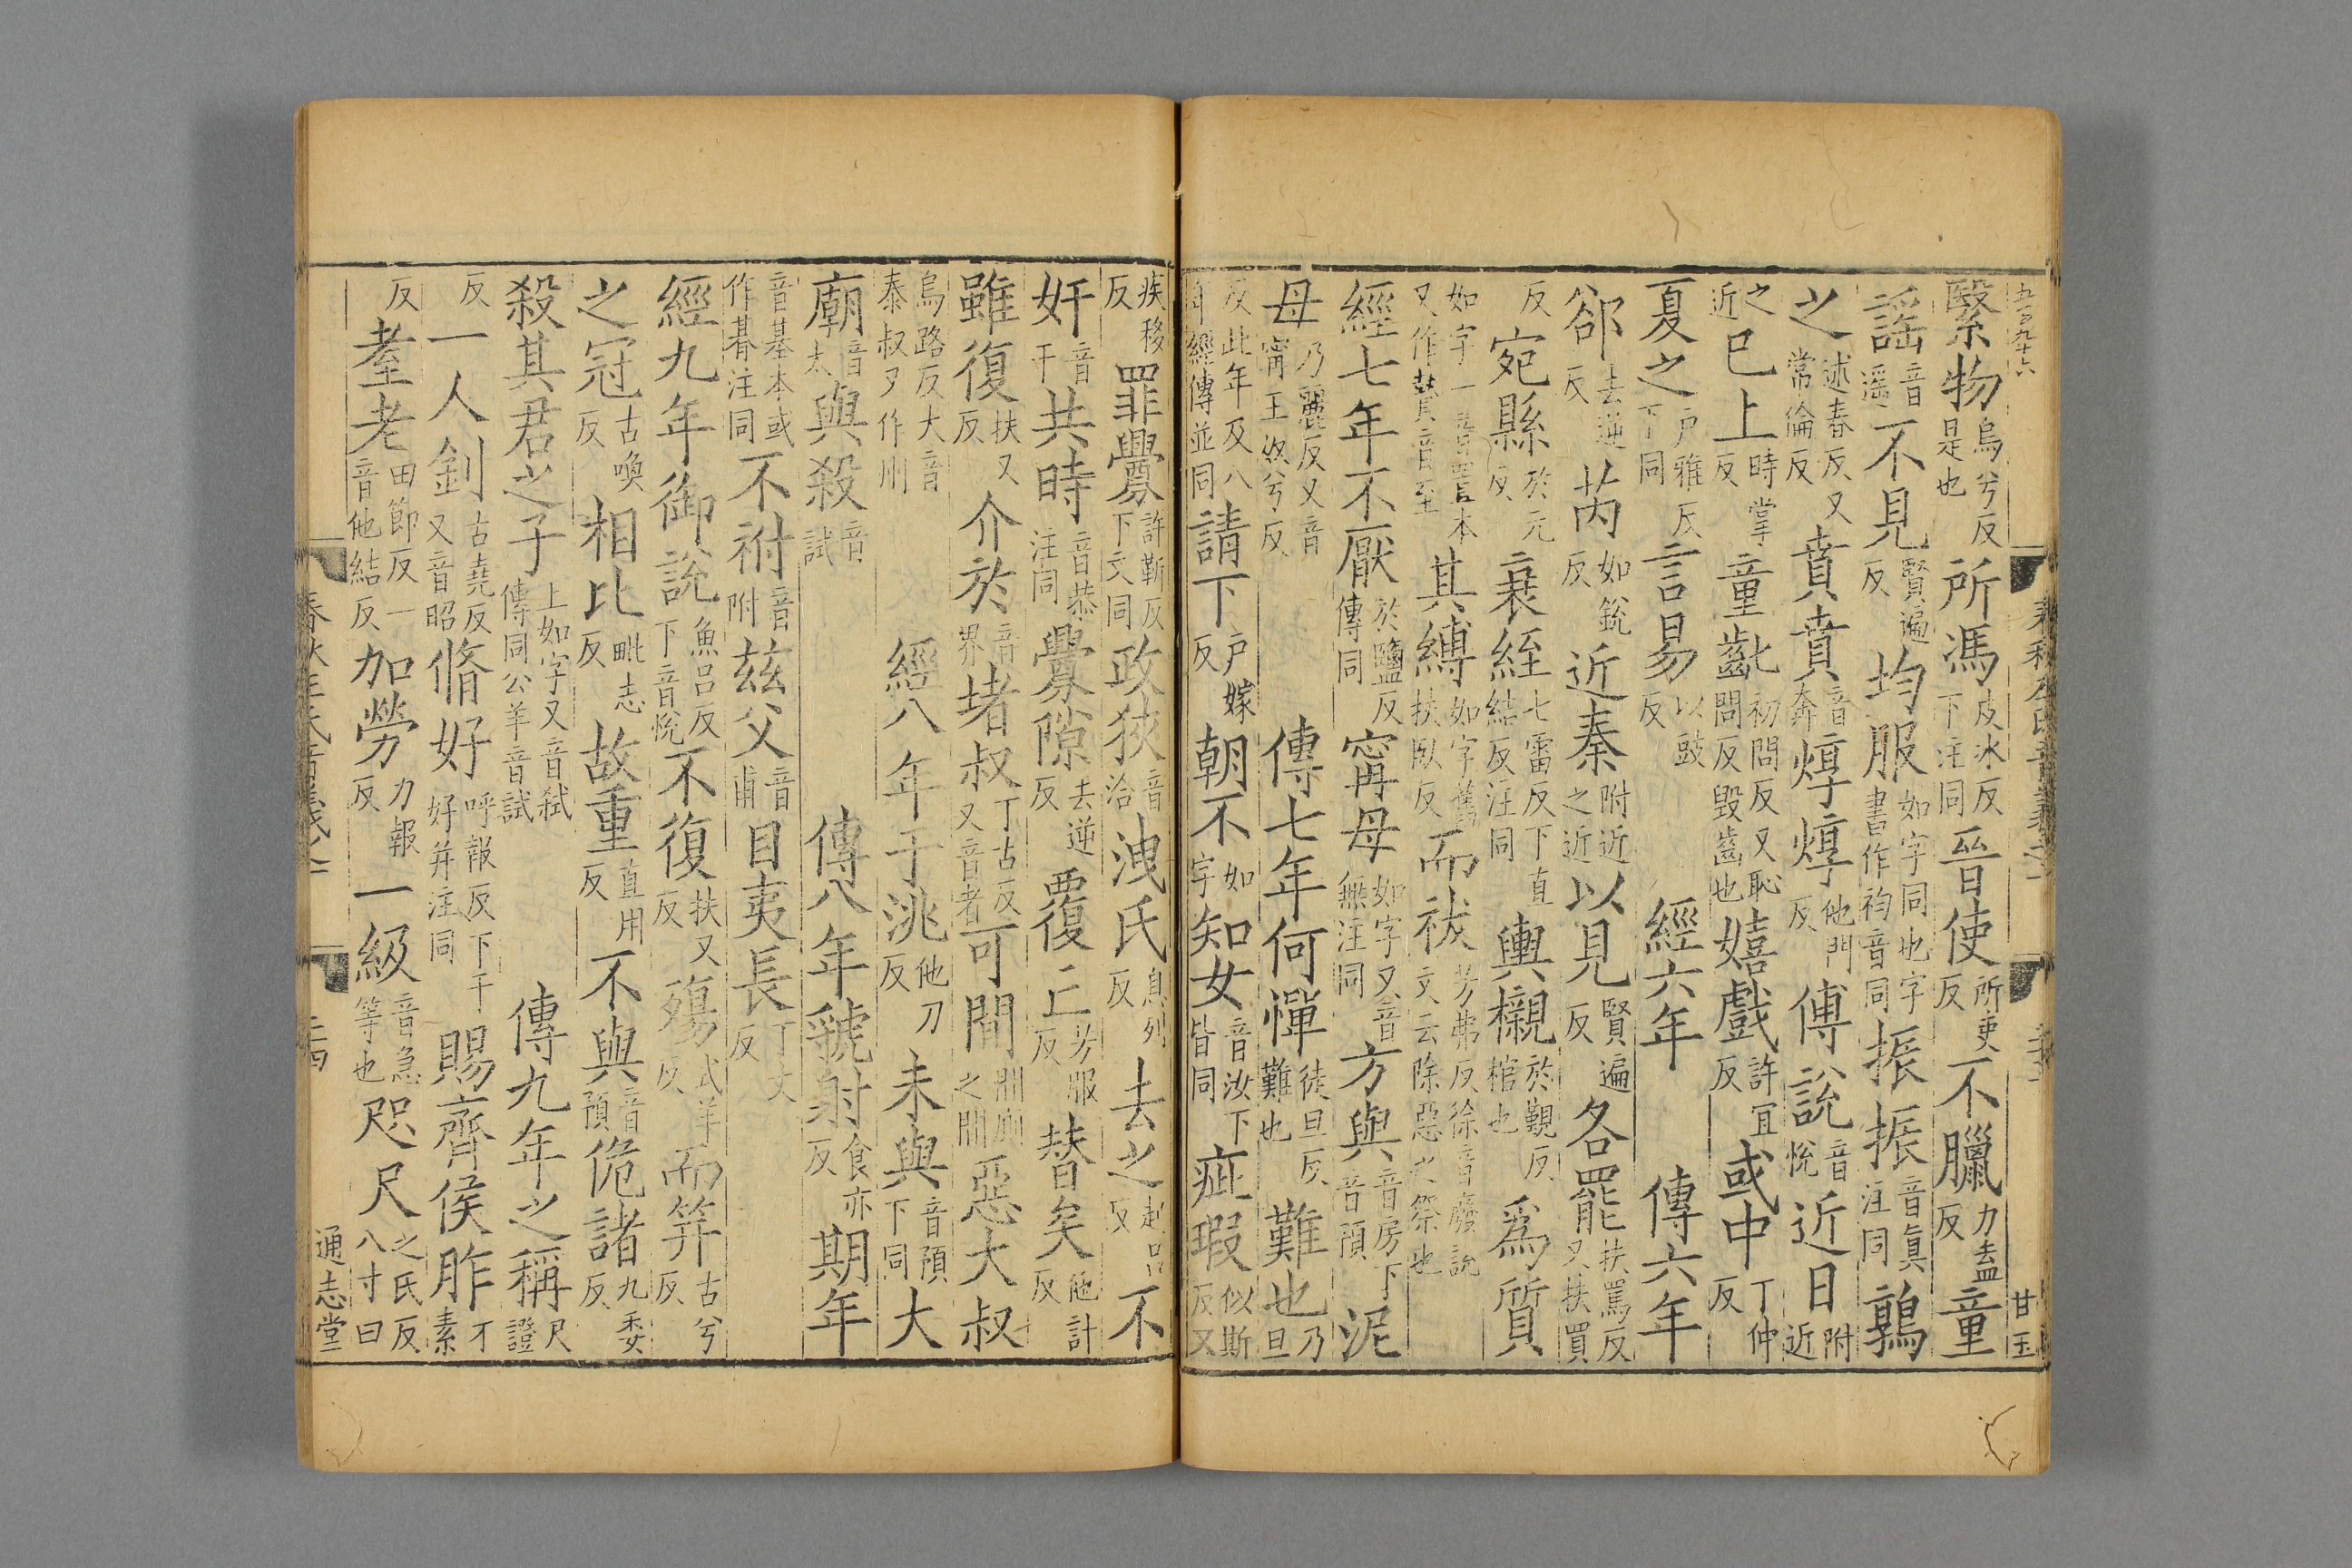 五百九十六
春秋左氏音義之一
甘玉
繄物烏兮反是也所馮皮冰反下注同晉使所吏反不臘力盍反童
謡音遥不見賢遍反均服如字同也字書作袀音同振振音真注同鶉
之述春反又常倫反賁賁音奔焞焞他門反傅說音悅近日附近
之近巳上時掌反童齔初問反又恥問反毀齒也嬉戲許宜反或中丁仲反
夏之戶雅反下同言易以豉反經六年傳六年
郤去逆反芮如銳反近秦附近之近以見賢遍反各罷扶罵反又扶買
反宛縣於元反衰絰七雷反下直結反注同輿櫬於覲反棺也爲質
如字一音置本又作贄音至其縛如字舊扶臥反而祓芳弗反徐音廢說文云除惡之祭也
經七年不厭於鹽反傳同甯母如字又音無注同方與音房下音預泥
母乃麗反又音甯王泜兮反傳七年何憚徒旦反難也難也乃旦
反此年及八年經傳並同請下戶嫁反朝不如字知女音汝下皆同疵瑕似斯反又
疾移反罪釁許靳反下文同政狹音洽洩氏息列反去之起呂反不
奸音干共時音恭注同釁隙去逆反覆亡芳服反替矣他計反
雖復扶又反介於音界堵叔丁古反又音者可間間廁之間惡大叔
烏路反大音泰叔又作州經八年于洮他刀反未與音預下同大
廟音太與殺音試傳八年虢射食亦反期年
音基本或作朞注同不祔音附茲父音甫目夷長丁丈反
經九年御說魚呂反下音悅不復扶又反殤式羊反而筓古兮反
之冠古喚反相比毗志反故重直用反不與音預佹諸九委反
殺其君之子上如字又音弒傳同公羊音試傳九年之稱尺證
反一人釗古堯反又音昭脩好呼報反下干好并注同賜齊侯胙才素
反耋老田節反一音他結反加勞力報反一級音急等也咫尺之氏反八寸曰
春秋左氏音義之一
通志堂